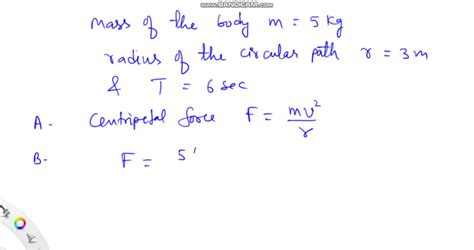 www.BANDICAM.com
mass of the body m = 5 kg
radius of the circular path r = 3 m
& T = 6 sec
A - Centripetal force F = mv²/r
B - F = 5'